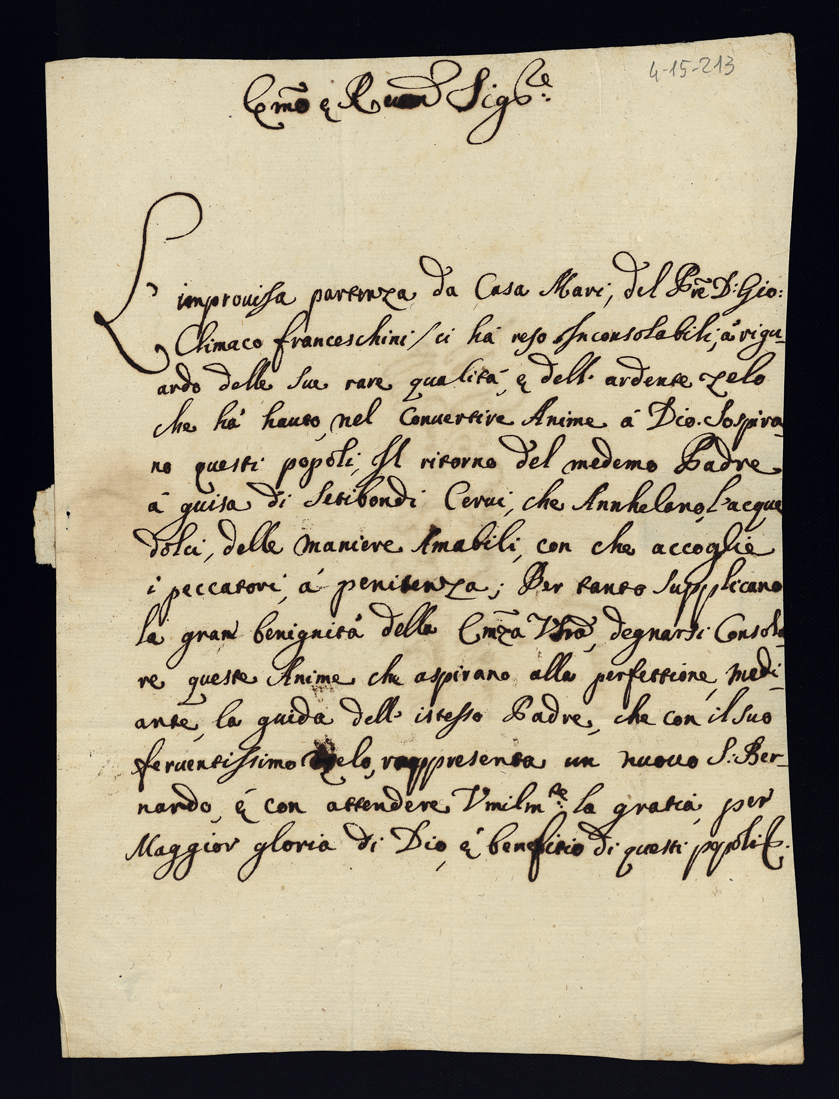 4-15-213
Em̃o e Reuer̃ Sig.re:
L' improuissa partenza da Casa Mari, del Prẽ D: Gio:
Climaco franceschini / ci há reso Inconsolabili, á rigu-
ardo delle sue rare qualitá, e dell' ardente zelo
che há hauto, nel Conuertire Anime á Dio. Sospira-
no questi popoli, Il ritorno del medemo Padre
á guisa di Setibondi Cerui, che Annhelano, L'acque
dolci, delle maniere Amabili, con che accoglie
i peccatori, á penitenza; Per tanto supplicano
la gran benignitá della Em̃za Vrã, degnarsi Consola-
re queste Anime che aspirano alla perfettione, medi-
ante, la guida dell' istesso Padre, che con il suo
feruentissimo zelo, rappresenta un nuouo S: Ber-
nardo, é con attendere Vmilm.te: la gratia, per
Maggior gloria di Dio, é benefitio di questi popoli &.